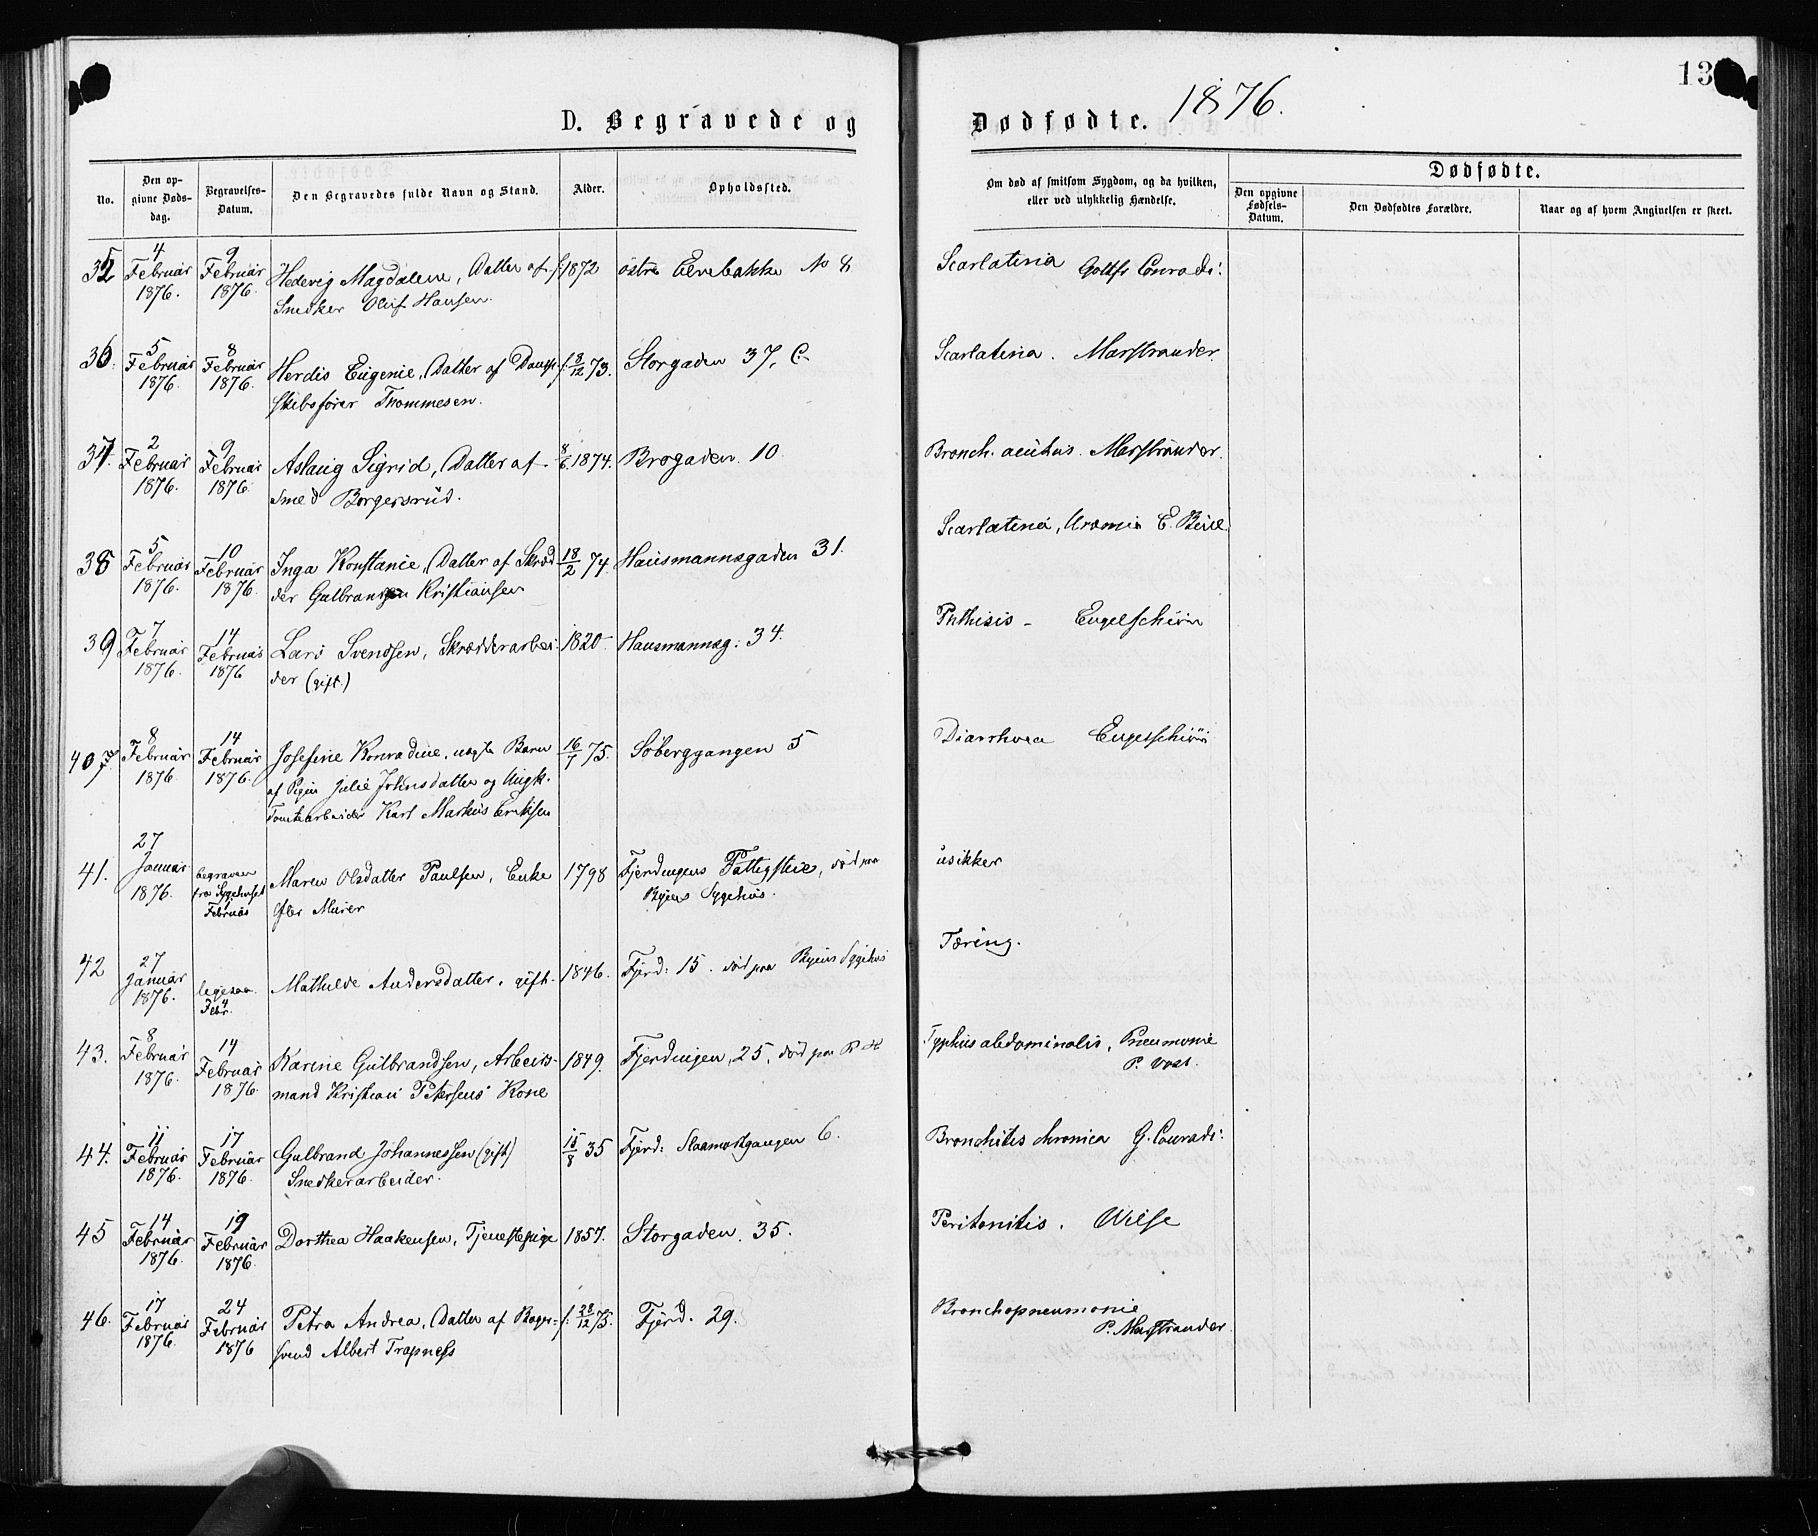 D. Begravede og
Dødfødte. 1876.
13
No.
Den op-
givne Døds-
dag.
Begravelses-
Datum.
Den Begravedes fulde Navn og Stand.
Alder.
Opholdssted.
Om død af smitsom Sygdom, og da hvilken,
eller ved ulykkelig Hændelse.
Dødfødte.
Den opgivne
Fødsels-
Datum.
Den Dødfødtes Forældre.
Naar og af hvem Angivelsen er skeet.
35
4 Februar 1876.
9 Februar 1876.
Hedevig Magdalene, Datter af
Snedker Oluf Hansen.
f. 1872
østre Elvebakke No 8
Scarlatina Gottfr Conradi.
36.
5 Februar 1876.
8 Februar 1876.
Herdis Eugenie, Datter af Damp-
skibsfører Thommesen.
f. 8/12 73.
Storgaden 37, C-
Scarlatina. Marstrander.
37.
2 Februar 1876.
9 Februar 1876.
Aslaug Sigrid, Datter af
Smed Borgersrud.
8/6 1874.
Brogaden. 10
Bronch. acutus. Marstrander.
38
5 Februar 1876.
10 Februar 1876.
Inga Konstance, Datter af Skræd
der Gulbrandsen Kristiansen
18/2 74.
Hausmannsgaden 31.
Scarlatina, Uræmia E. Bull
39
7 Februar 1876.
14 Februar 1876
Lars Svendsen, Skrædderarbei-
der (gift.)
1820-
Hausmannsg: 34.
Phthisis - Engelschiøn
40
8 Februar 1876.
14 Februar 1876.
Josefine Konradine, uægte Barn
af Pigen Julie Johnsdatter og Ungk.
Tomtearbeider Karl Markus Eriksen
16/7 75.
Søberggangen 5
Diarrhoea Engelschiøn
41.
27 Januar 1876.
begraven
fra Sygehuset
Februar
Maren Olsdatter Paulsen, Enke
efter Murer
1798
Fjerdingens Fattigstue, død paa
Byens Sygehus.
usikker
42
27 Januar 1876.
ligesaa
4 Febr.
Mathilde Andersdatter, gift.
1846.
Fjerd: 15. død paa Byens Sygehus
Tæring.
43.
8 Februar 1876.
14 Februar 1876.
Karine Gulbrandsen, Arbeids-
mand Kristian Petersens Kone
1849.
Fjerdingen, 25, død paa R H
Typhus abdominalis, Pneumonie
P. Voss.
44.
11 Februar 1876.
17 Februar 1876.
Gulbrand Johannessen (gift)
Snedkerarbeider.
15/8 35
Fjerd: Slaamotgangen 6.
Bronchitis chronica G. Conradi.
45
14 Februar 1876.
19 Februar 1876.
Dorthea Haakensen, Tjenestepige
1857.
Storgaden. 35.
Peritonitis. Wilse
46.
17 Februar 1876.
24 Februar 1876
Petra Andrea, Datter af Bager-
svend Albert Trapness
f. 28/12 75.
Fjerd. 29.
Bronchopneumonie
P. Marstrander.